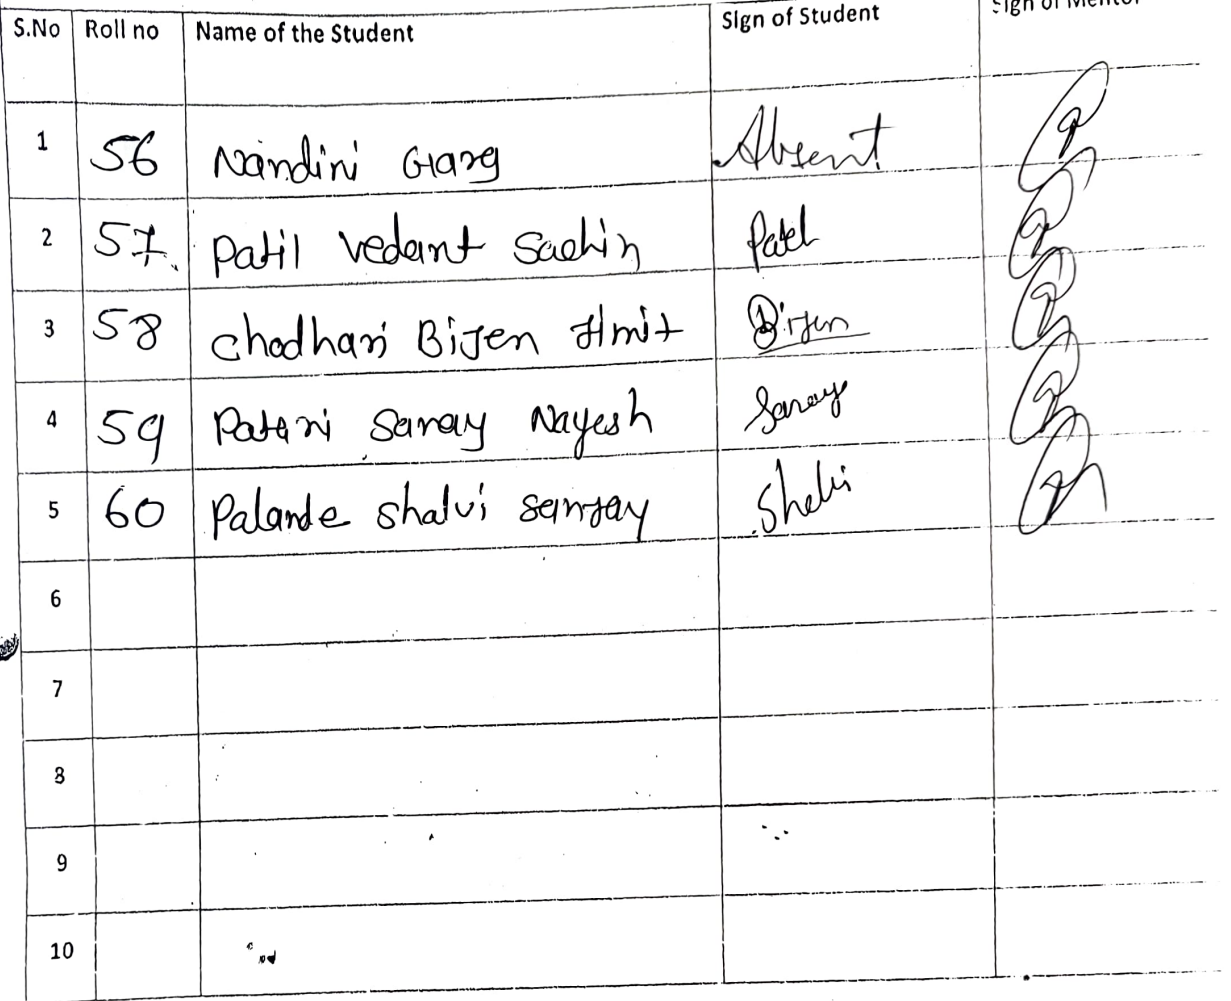 S.No Roll no Name of the Student Sign of Student Sign of Mentor
1 56 Nandini Garg Absent
2 57. Patil Vedant Sachin Patil
3 58 Chodhari BiJen Amit Birjen
4 59 Patani Saray Nayesh Saray
5 60 Palande Shalvi Sanjay Shalvi
6
7
8
9
10